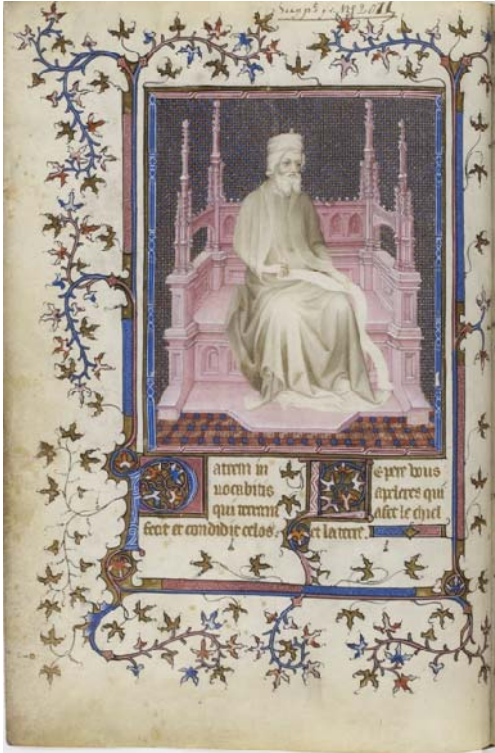 Suppt. fr. No 2011
Patrem in
uocabitis
qui terram
fecit et condidit celos.
Le pere vous
apeleres qui
a fet le chiel
et la terre.